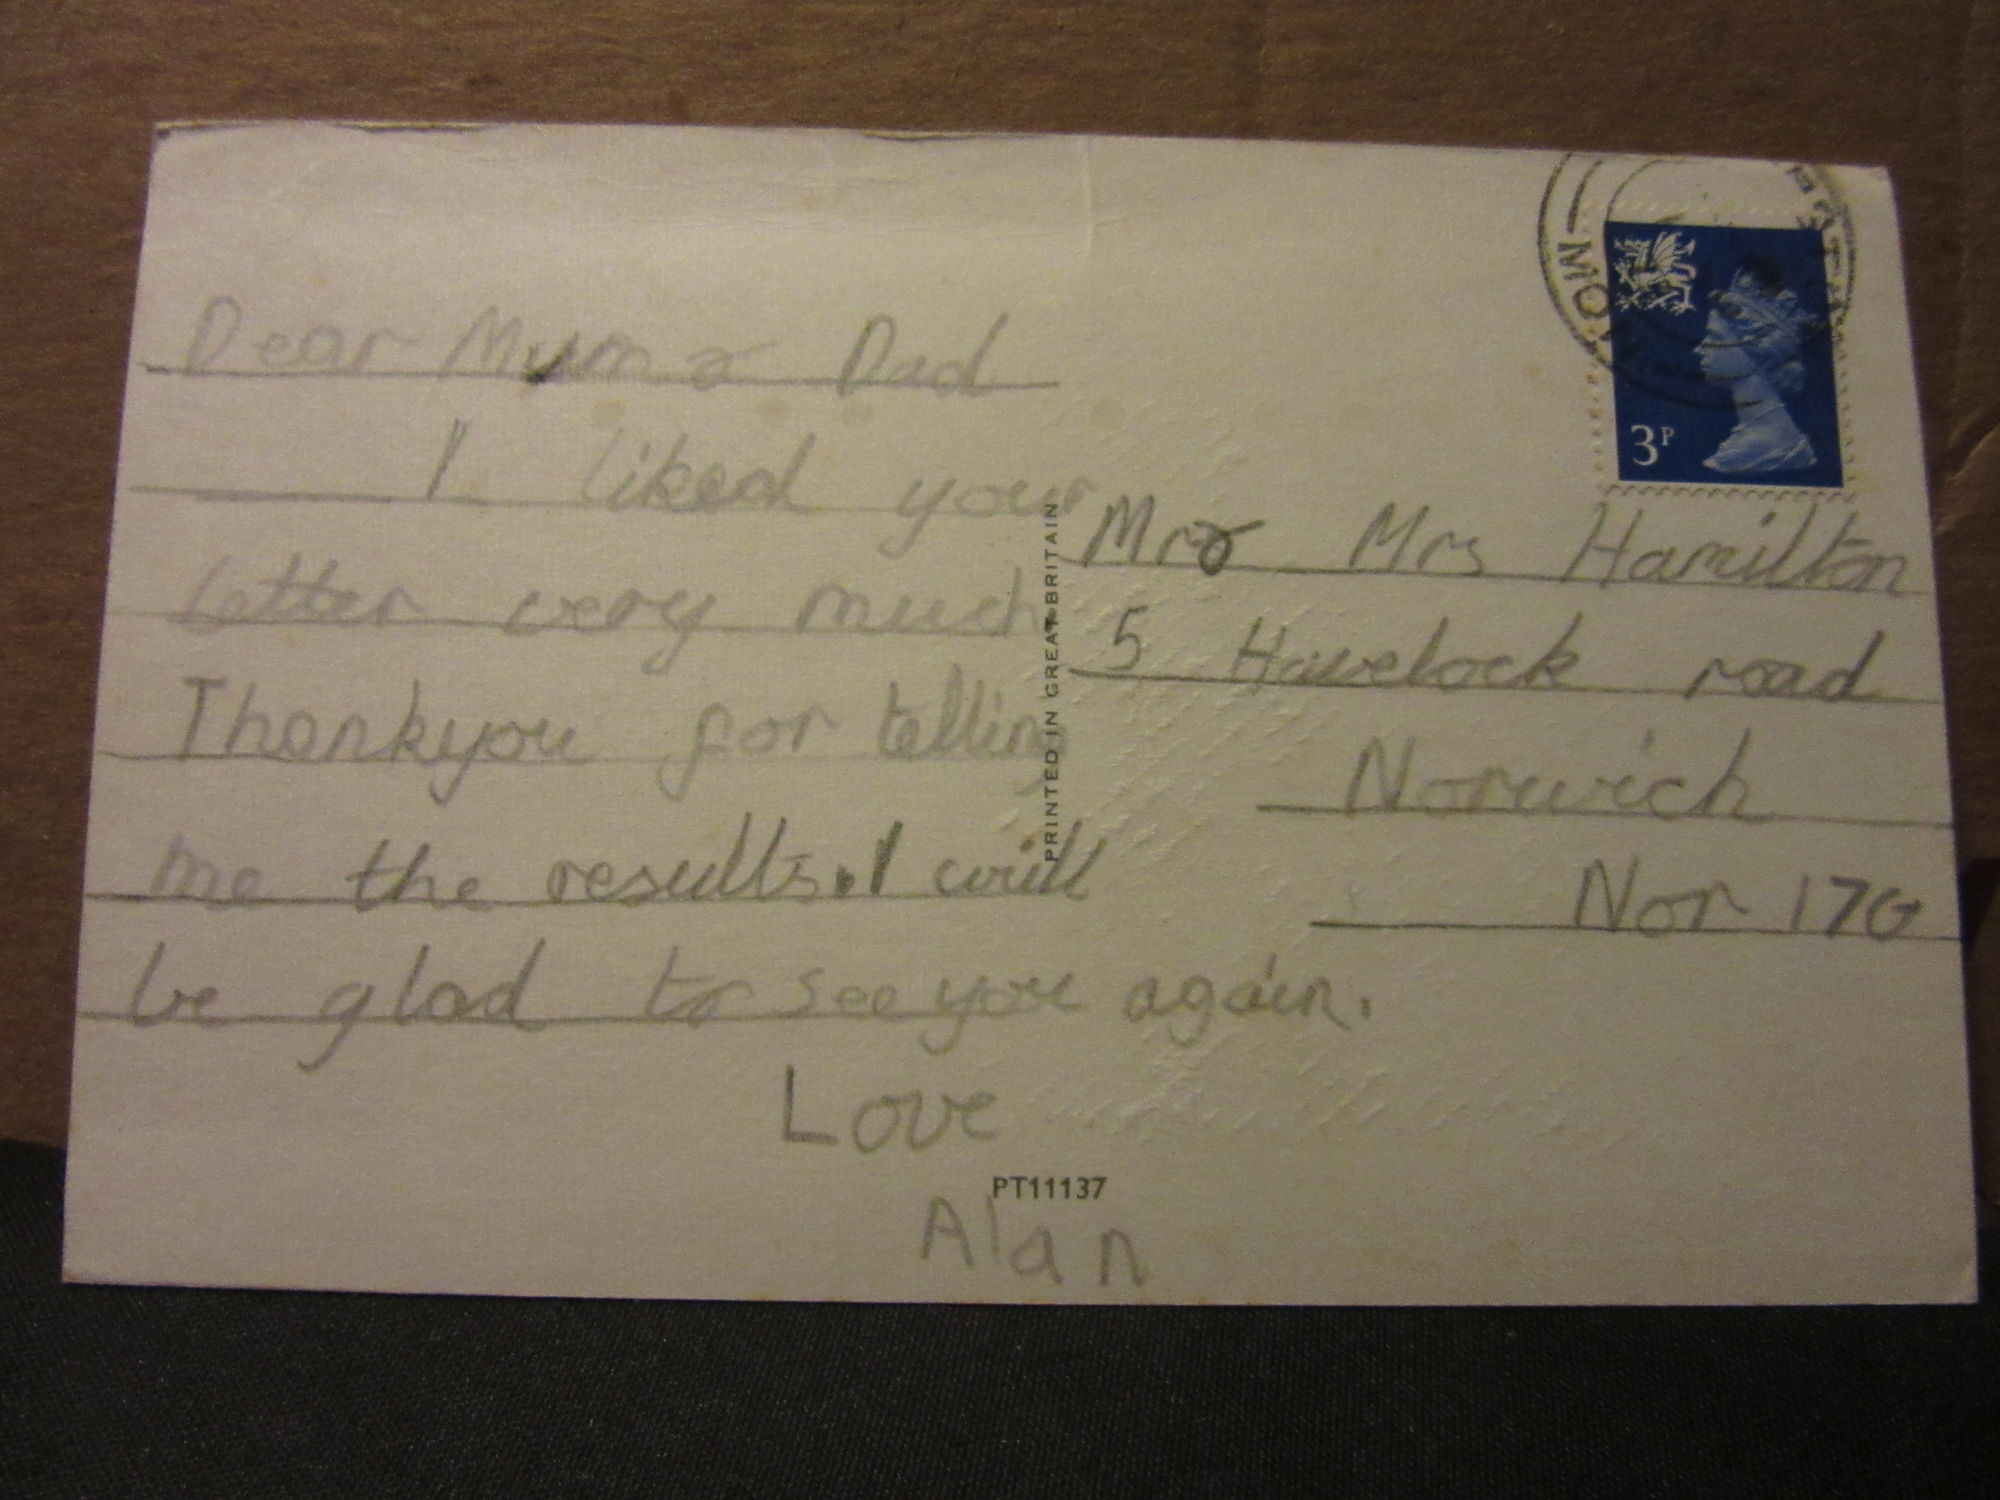 Dear Mum & Dad
I liked your
letter very much
Thankyou for telling
me the results. I will
be glad to see you again.
Love
Alan
PRINTED IN GREAT BRITAIN
PT11137
3P
Mr & Mrs Hamilton
5 Havelock road
Norwich
Nor 17G